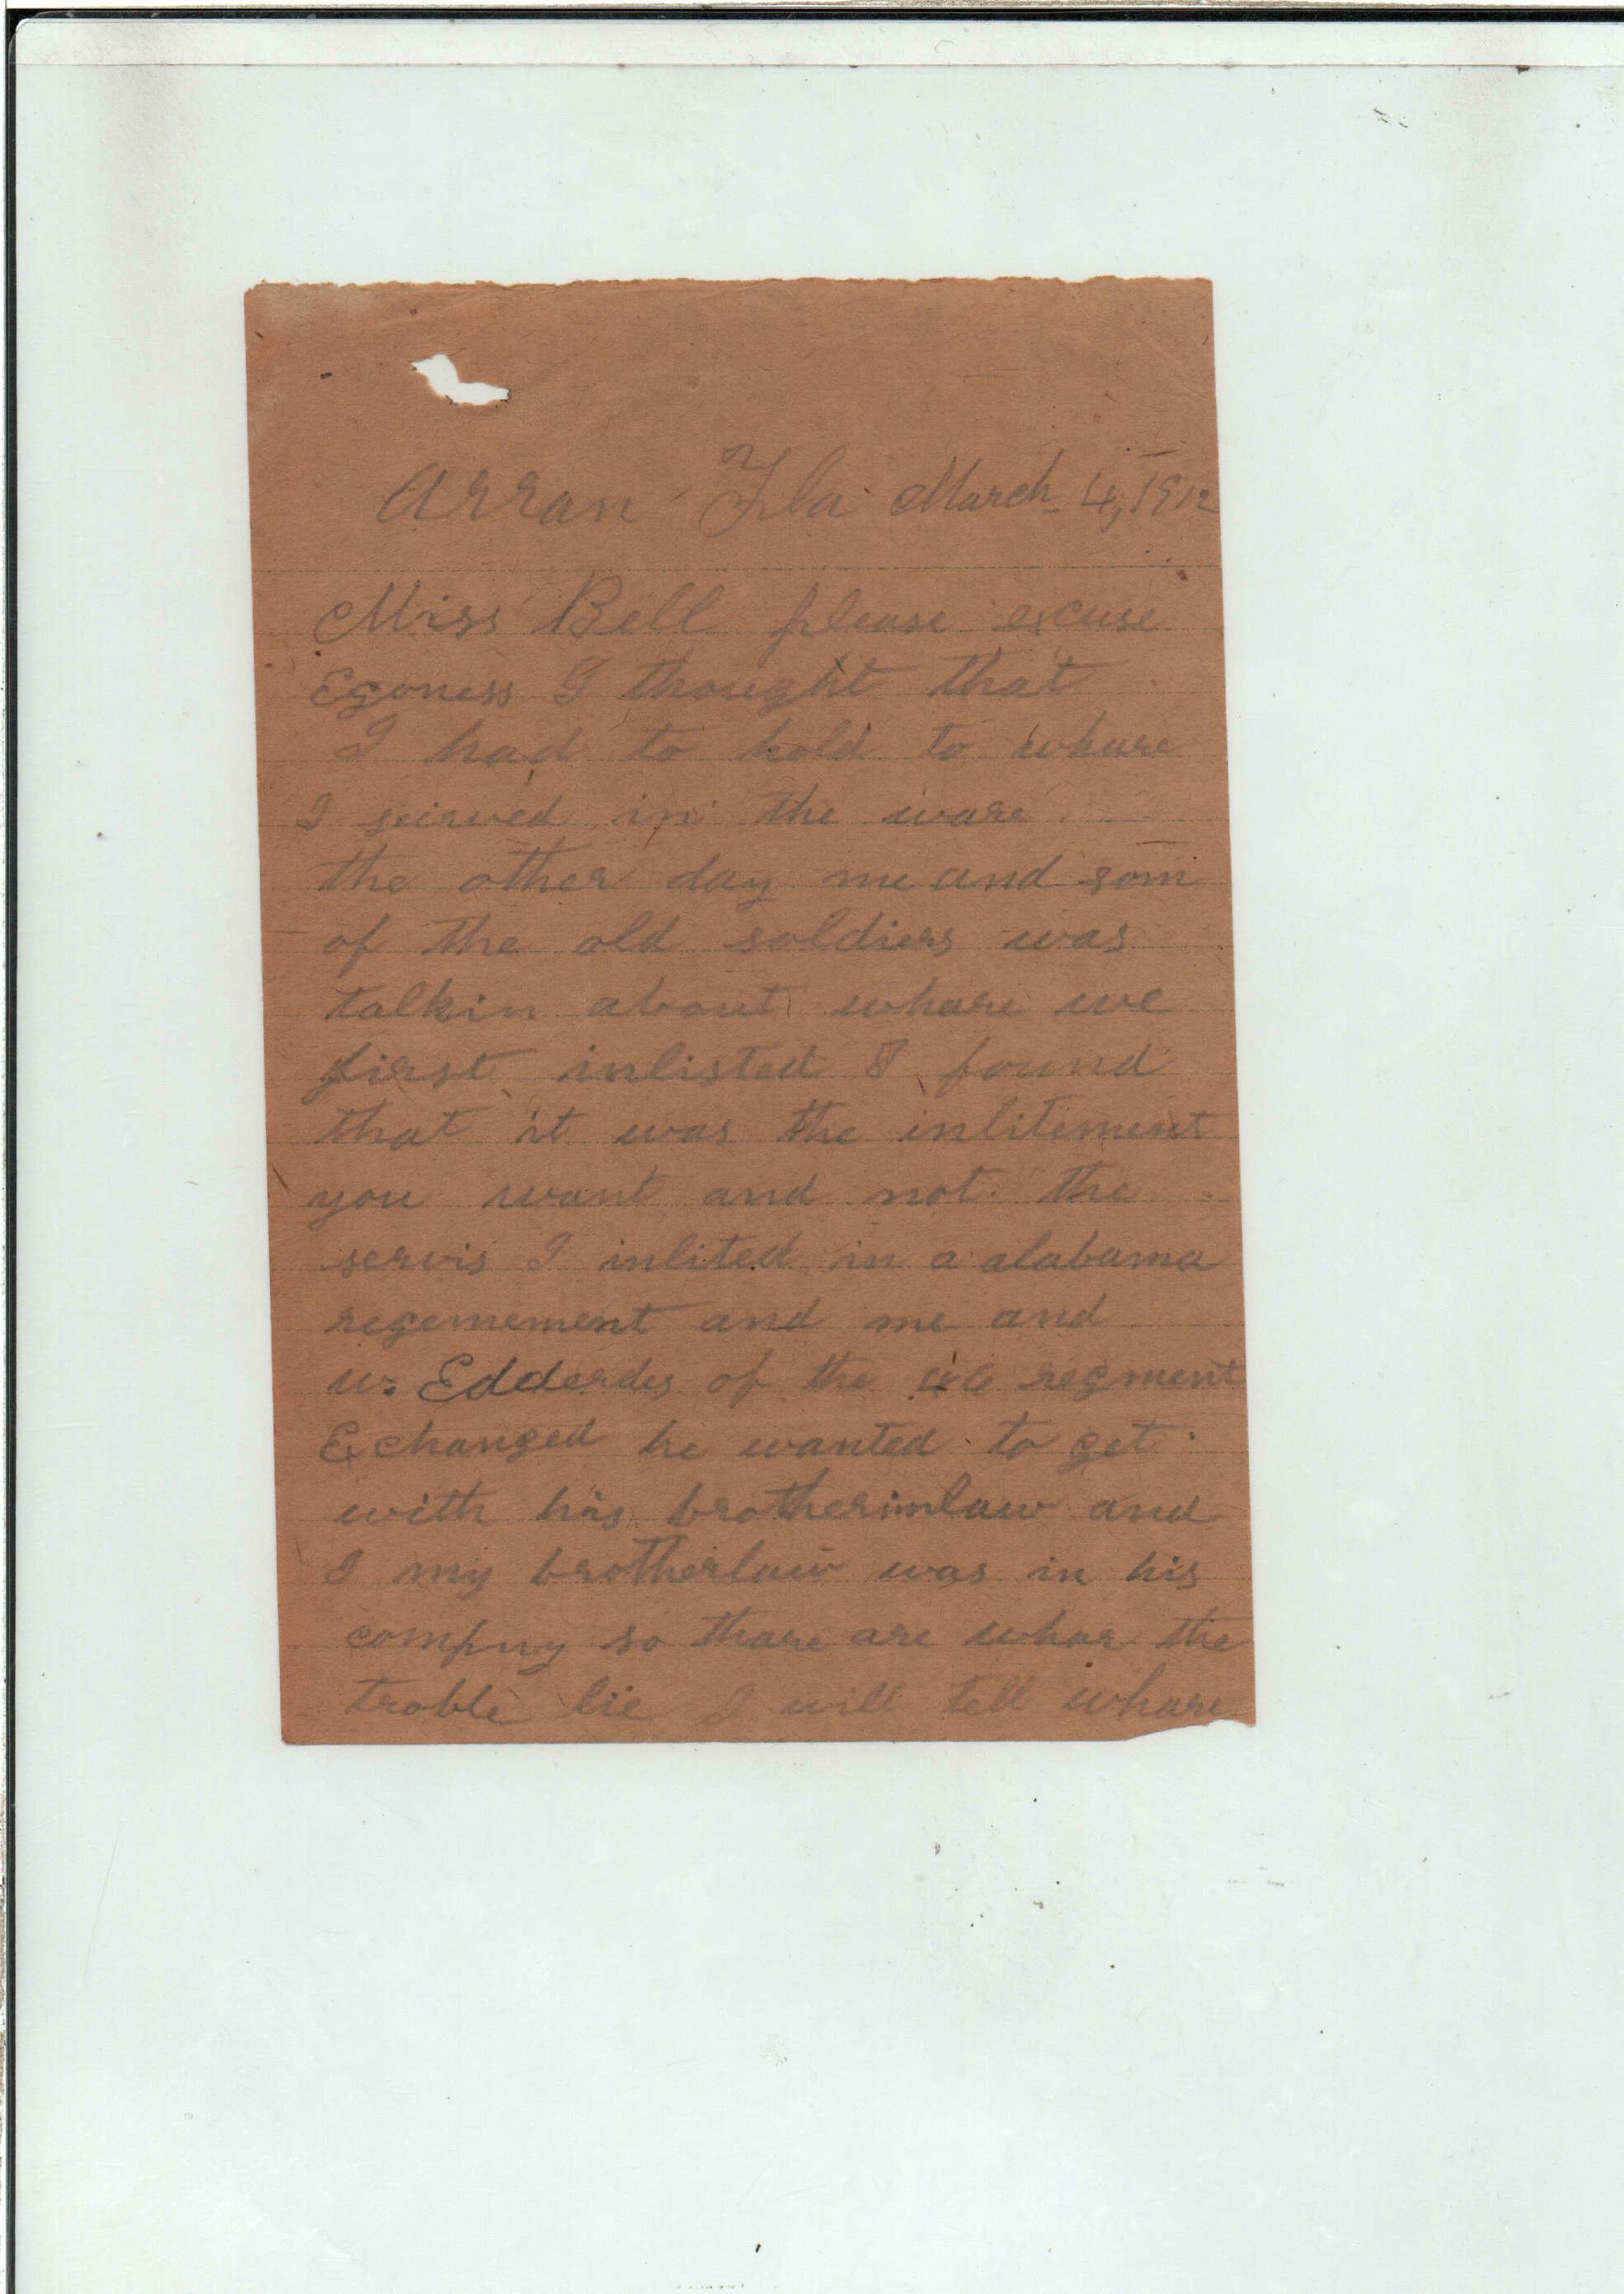 Arran Fla March 4, 1912
Miss Bell please excuse
Egoness I thought that
I had to hold to whare
I seirved in the ware
the other day me and som
of the old soldiers was
talkin about whare we
first inlisted I found
that it was the inlitement
you want and not the
servis I inlited in a alabama
regemement and me and
w. Edderdes of the 46 regment
Exchanged he wanted to get
with his brotherinlaw and
I my brotherlaw was in his
compny so thare are whar the
troble lie I will tell whare